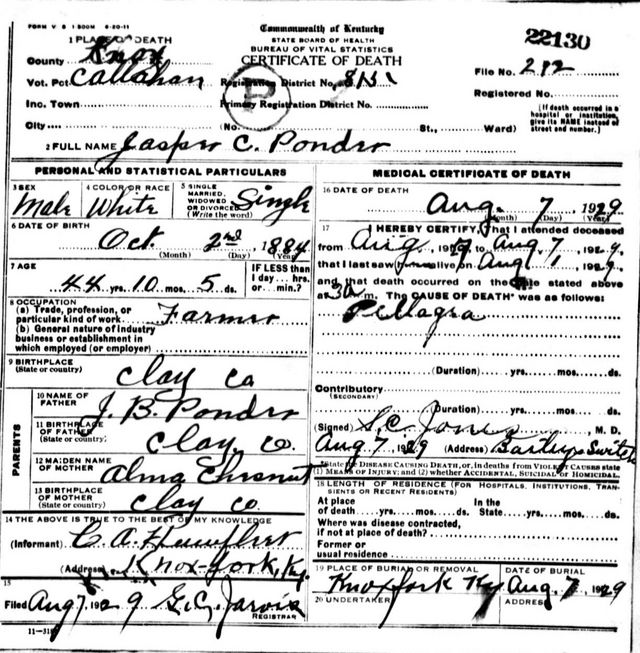 FORM V S 1 500M 6-20-11
Commonwealth of Kentucky
STATE BOARD OF HEALTH
BUREAU OF VITAL STATISTICS
CERTIFICATE OF DEATH
22130
1 PLACE OF DEATH
County Knox
Vot. Pct Callahan
Inc. Town
City
Registration District No.
Primary Registration District No.
(No. St., Ward)
File No. 292
Registered No.
[If death occurred in a
hospital or institution,
give its NAME instead of
street and number.]
P
2 FULL NAME Jasper C. Ponder
PERSONAL AND STATISTICAL PARTICULARS
3 SEX Male
4 COLOR OR RACE White
5 SINGLE
MARRIED,
WIDOWED
OR DIVORCED
(Write the word) Single
6 DATE OF BIRTH
Oct 2nd, 1884
(Month) (Day) (Year)
7 AGE
44 yrs. 10 mos. 5 ds.
IF LESS than
1 day... hrs.
or... min.?
8 OCCUPATION
(a) Trade, profession, or
particular kind of work Farmer
(b) General nature of industry
business or establishment in
which employed (or employer)
9 BIRTHPLACE
(State or country)
Clay Co
PARENTS
10 NAME OF
FATHER J. B. Ponder
11 BIRTHPLACE
OF FATHER
(State or country) Clay, Co.
12 MAIDEN NAME
OF MOTHER Alma
13 BIRTHPLACE
OF MOTHER
(State or country) Clay Co.
14 THE ABOVE IS TRUE TO THE BEST OF MY KNOWLEDGE
(Informant) C. A.
(Address) Knox-fork, Ky.
15
Filed Aug 7, 1929 G. C. Jarvis
REGISTRAR
11-3184
MEDICAL CERTIFICATE OF DEATH
16 DATE OF DEATH
Aug. 7, 1929
(Month) (Day) (Year)
17 I HEREBY CERTIFY, That I attended deceased
from Aug 1929, to Aug 7, 1929,
that I last saw alive on Aug, 1929,
and that death occurred on the date stated above
at 3a m. The CAUSE OF DEATH* was as follows:
Pellagra
(Duration) yrs. mos. ds.
Contributory
(SECONDARY)
(Duration) yrs. mos. ds.
(Signed) S. C. Jones, M. D.
Aug 7 1929 (Address)
*State the DISEASE CAUSING DEATH, or, in deaths from VIOLENT CAUSES state
(1) MEANS OF INJURY; and (2) whether ACCIDENTAL, SUICIDAL or HOMICIDAL.
18 LENGTH OF RESIDENCE (FOR HOSPITALS, INSTITUTIONS, TRAN-
SIENTS OR RECENT RESIDENTS)
At place In the
of death yrs. mos. ds. State yrs. mos. ds.
Where was disease contracted,
if not at place of death?
Former or
usual residence
19 PLACE OF BURIAL OR REMOVAL
Knoxfork Ky
DATE OF BURIAL
Aug 7, 1929
20 UNDERTAKER
ADDRESS